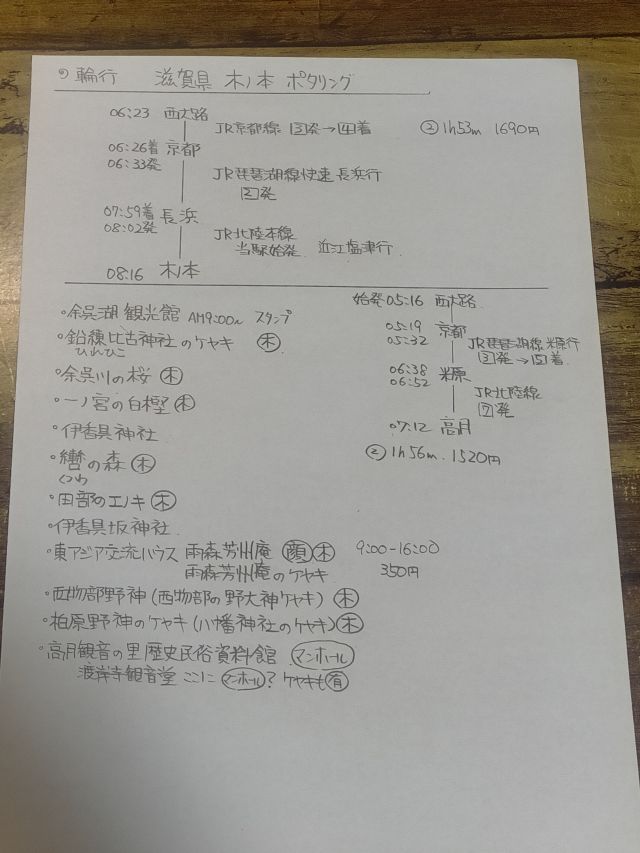 の 輪行 滋賀県 木ノ本 ポタリング
06:23 西大路
JR京都線 3発→4着
② 1h53m 1690円
06:26着 京都
06:33発
JR琵琶湖線快速 長浜行
2発
07:59着 長浜
08:02発
JR北陸本線
当駅始発 近江塩津行
08:16 木ノ本
・余呉湖 観光館 AM9:00〜 スタンプ
・鉛練比古神社のケヤキ 木
ひれひこ
・余呉川の桜 木
・一ノ宮の白樫 木
・伊香具神社
・轡の森 木
くつわ
・田部のエノキ 木
・伊香具坂神社
・東アジア交流ハウス 雨森芳洲庵 顔 木 9:00-16:00
雨森芳洲庵のケヤキ 350円
・西物部野神(西物部の野大神ケヤキ) 木
・柏原野神のケヤキ(八幡神社のケヤキ) 木
・高月観音の里 歴史民俗資料館 マンホール
渡岸寺観音堂 ここに マンホール? ケヤキも 有
始発 05:16 西大路
05:19 京都
05:32
JR琵琶湖線 米原行
3発→5着
06:38 米原
06:52
JR北陸線
7発
07:12 高月
② 1h56m. 1520円